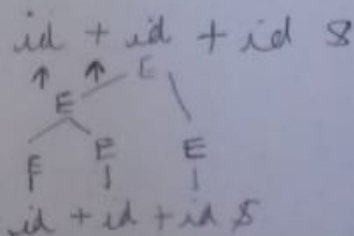 id + id + id $
E
E
E E E
id + id + id $